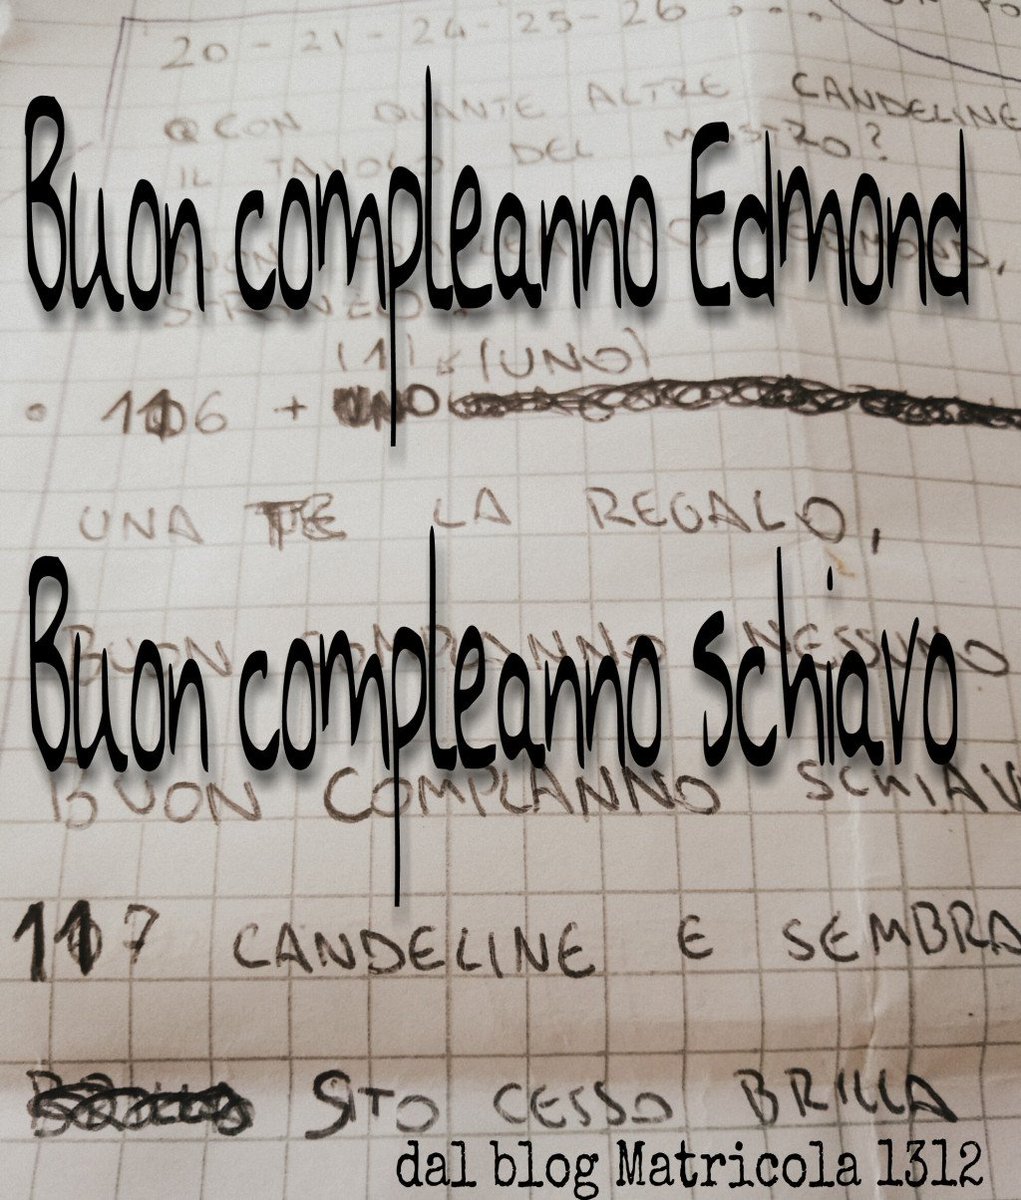 20 - 21 - 24 - 25 - 26 ...
CON QUANTE ALTRE CANDELINE
IL TAVOLO DEL MOSTRO?
Buon compleanno Edmond
(1) (UNO)
• 116 + UNO
UNA TE LA REGALO,
BUON COMPLANNO NESSUNO
Buon compleanno schiavo
BUON COMPLANNO SCHIAV
117 CANDELINE E SEMBRA
STO CESSO BRILLA
dal blog Matricola 1312